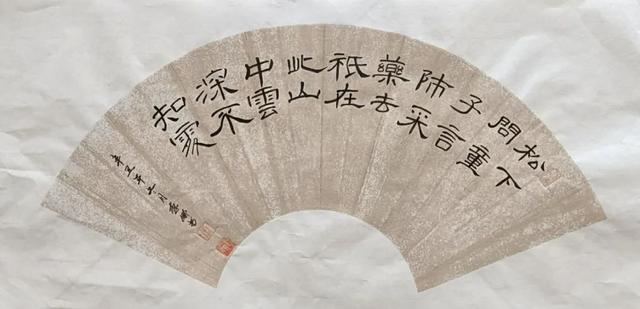 松下
問童
子言
師采
藥去
祇在
此山
中雲
深不
知處
辛丑年